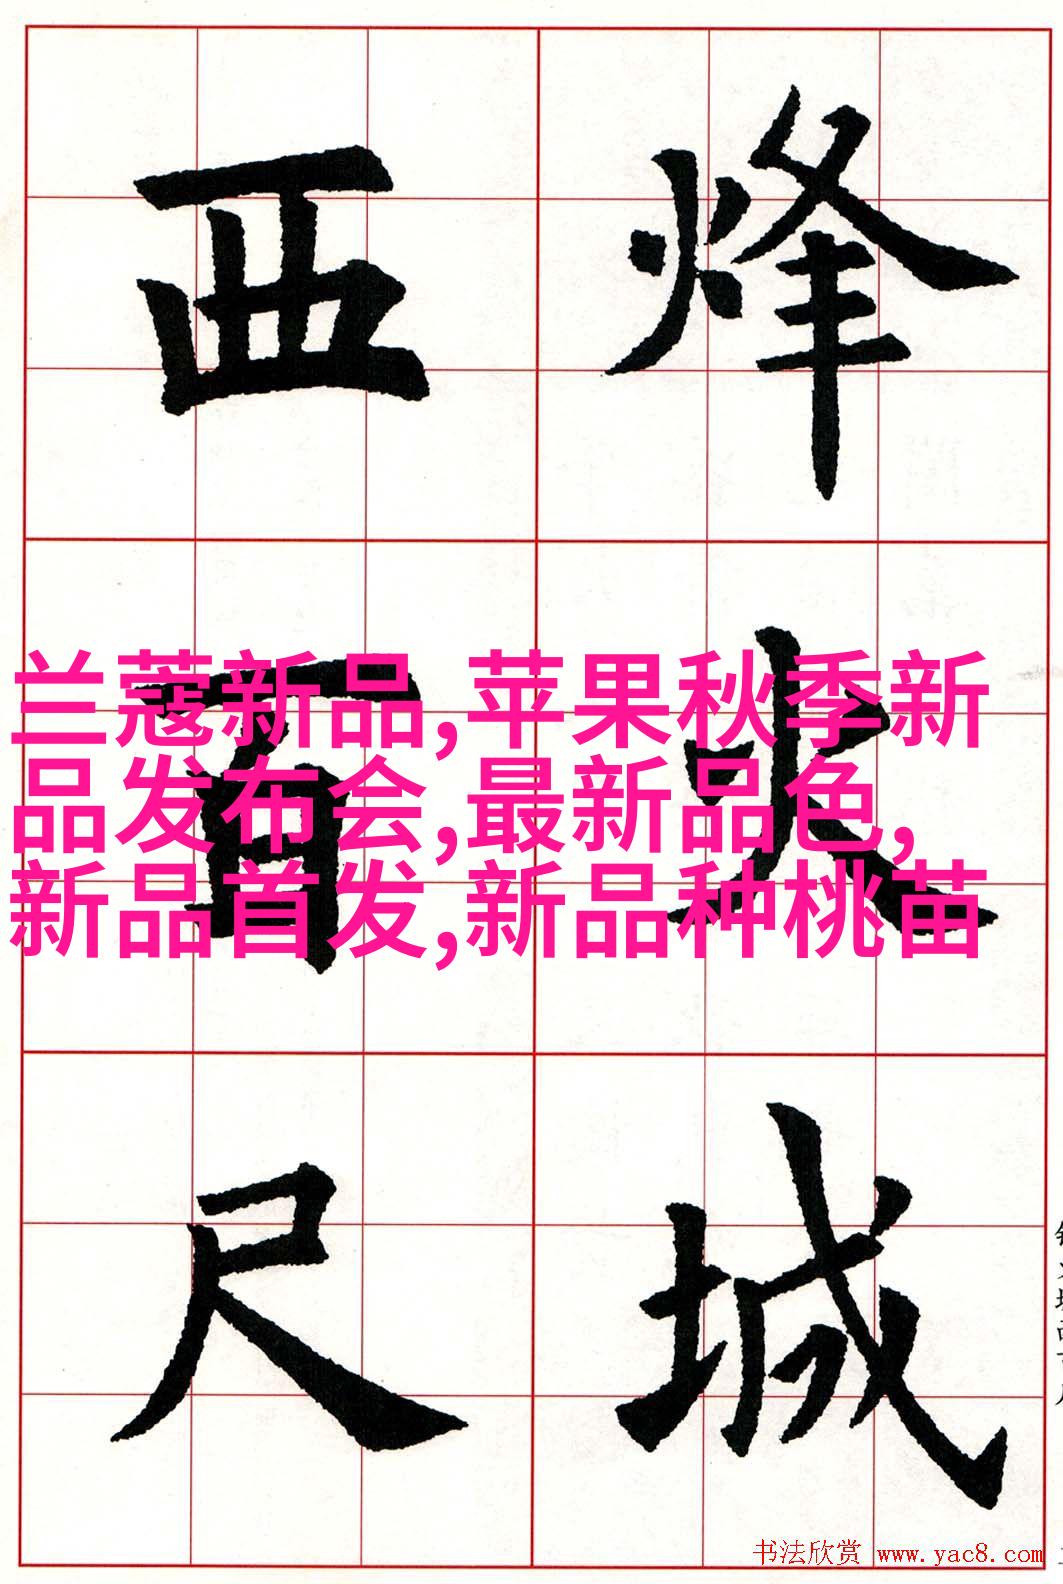 烽火城
西百尺
兰蔻新品,苹果秋季新
品发布会,最新品色,
新品首发,新品种桃苗
书法欣赏 www.yac8.com